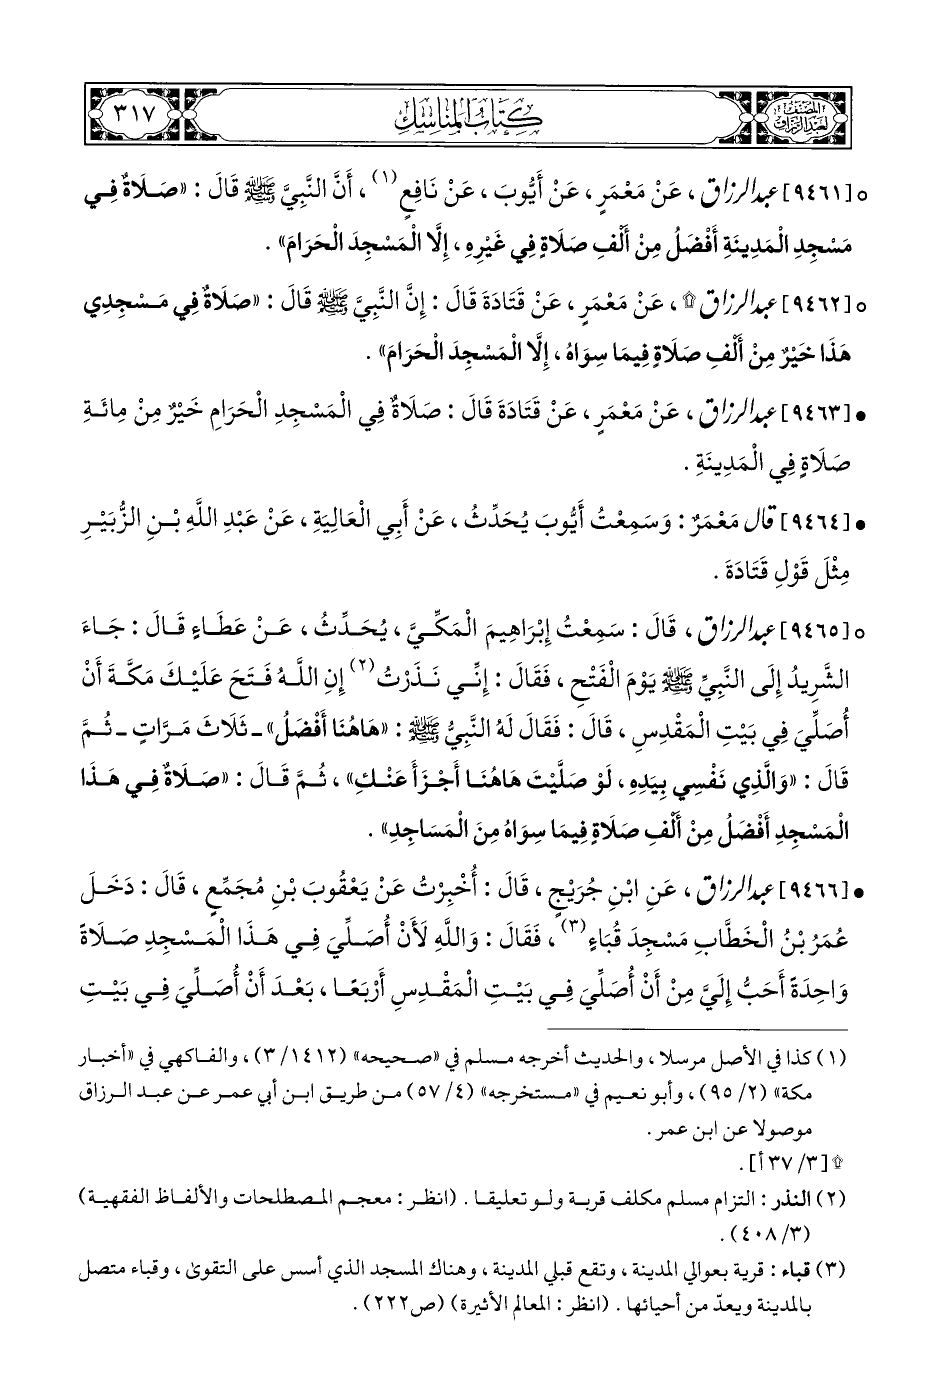 المصنف لعبد الرزاق كتاب المناسك ٣١٧
○ [٩٤٦١] عبد الرزاق، عَنْ مَعْمَرٍ، عَنْ أَيُّوبَ، عَنْ نَافِعٍ(١)، أَنَّ النَّبِيَّ ﷺ قَالَ: «صَلَاةٌ فِي
مَسْجِدِ الْمَدِينَةِ أَفْضَلُ مِنْ أَلْفِ صَلَاةٍ فِي غَيْرِهِ، إِلَّا الْمَسْجِدَ الْحَرَامَ».
○ [٩٤٦٢] عبد الرزاق۩، عَنْ مَعْمَرٍ، عَنْ قَتَادَةَ قَالَ: إِنَّ النَّبِيَّ ﷺ قَالَ: «صَلَاةٌ فِي مَسْجِدِي
هَذَا خَيْرٌ مِنْ أَلْفِ صَلَاةٍ فِيمَا سِوَاهُ، إِلَّا الْمَسْجِدَ الْحَرَامَ».
• [٩٤٦٣] عبد الرزاق، عَنْ مَعْمَرٍ، عَنْ قَتَادَةَ قَالَ: صَلَاةٌ فِي الْمَسْجِدِ الْحَرَامِ خَيْرٌ مِنْ مِائَةِ
صَلَاةٍ فِي الْمَدِينَةِ.
• [٩٤٦٤] قال مَعْمَرٌ: وَسَمِعْتُ أَيُّوبَ يُحَدِّثُ، عَنْ أَبِي الْعَالِيَةِ، عَنْ عَبْدِ اللَّهِ بْنِ الزُّبَيْرِ
مِثْلَ قَوْلِ قَتَادَةَ.
○ [٩٤٦٥] عبد الرزاق، قَالَ: سَمِعْتُ إِبْرَاهِيمَ الْمَكِّيَّ، يُحَدِّثُ، عَنْ عَطَاءٍ قَالَ: جَاءَ
الشَّرِيدُ إِلَى النَّبِيِّ ﷺ يَوْمَ الْفَتْحِ، فَقَالَ: إِنِّي نَذَرْتُ(٢) إِنِ اللَّهُ فَتَحَ عَلَيْكَ مَكَّةَ أَنْ
أُصَلِّيَ فِي بَيْتِ الْمَقْدِسِ، قَالَ: فَقَالَ لَهُ النَّبِيُّ ﷺ: «هَاهُنَا أَفْضَلُ» - ثَلَاثَ مَرَّاتٍ - ثُمَّ
قَالَ: «وَالَّذِي نَفْسِي بِيَدِهِ، لَوْ صَلَّيْتَ هَاهُنَا أَجْزَأَ عَنْكَ»، ثُمَّ قَالَ: «صَلَاةٌ فِي هَذَا
الْمَسْجِدِ أَفْضَلُ مِنْ أَلْفِ صَلَاةٍ فِيمَا سِوَاهُ مِنَ الْمَسَاجِدِ».
• [٩٤٦٦] عبد الرزاق، عَنِ ابْنِ جُرَيْجٍ، قَالَ: أُخْبِرْتُ عَنْ يَعْقُوبَ بْنِ مُجَمِّعٍ، قَالَ: دَخَلَ
عُمَرُ بْنُ الْخَطَّابِ مَسْجِدَ قُبَاءٍ(٣)، فَقَالَ: وَاللَّهِ لَأَنْ أُصَلِّيَ فِي هَذَا الْمَسْجِدِ صَلَاةً
وَاحِدَةً أَحَبُّ إِلَيَّ مِنْ أَنْ أُصَلِّيَ فِي بَيْتِ الْمَقْدِسِ أَرْبَعًا، بَعْدَ أَنْ أُصَلِّيَ فِي بَيْتِ
(١) كذا في الأصل مرسلا، والحديث أخرجه مسلم في «صحيحه» (١٤١٢/٣)، والفاكهي في «أخبار
مكة» (٩٥/٢)، وأبو نعيم في «مستخرجه» (٥٧/٤) من طريق ابن أبي عمر عن عبد الرزاق
موصولا عن ابن عمر.
۩ [٣/ ٣٧ أ].
(٢) النذر: التزام مسلم مكلف قربة ولو تعليقا. (انظر: معجم المصطلحات والألفاظ الفقهية)
(٤٠٨/٣).
(٣) قباء: قرية بعوالي المدينة، وتقع قبلي المدينة، وهناك المسجد الذي أسس على التقوى، وقباء متصل
بالمدينة ويعدّ من أحيائها. (انظر: المعالم الأثيرة) (ص٢٢٢).